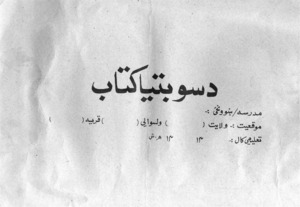 د سوبتیا کتاب
مدرسه/ښوونځی :.
موقعیت :. ولایت ( ) ولسوالی ( ) قریه ( )
تعلیمي کال :. ۱۳ ۱۳ هـ ش